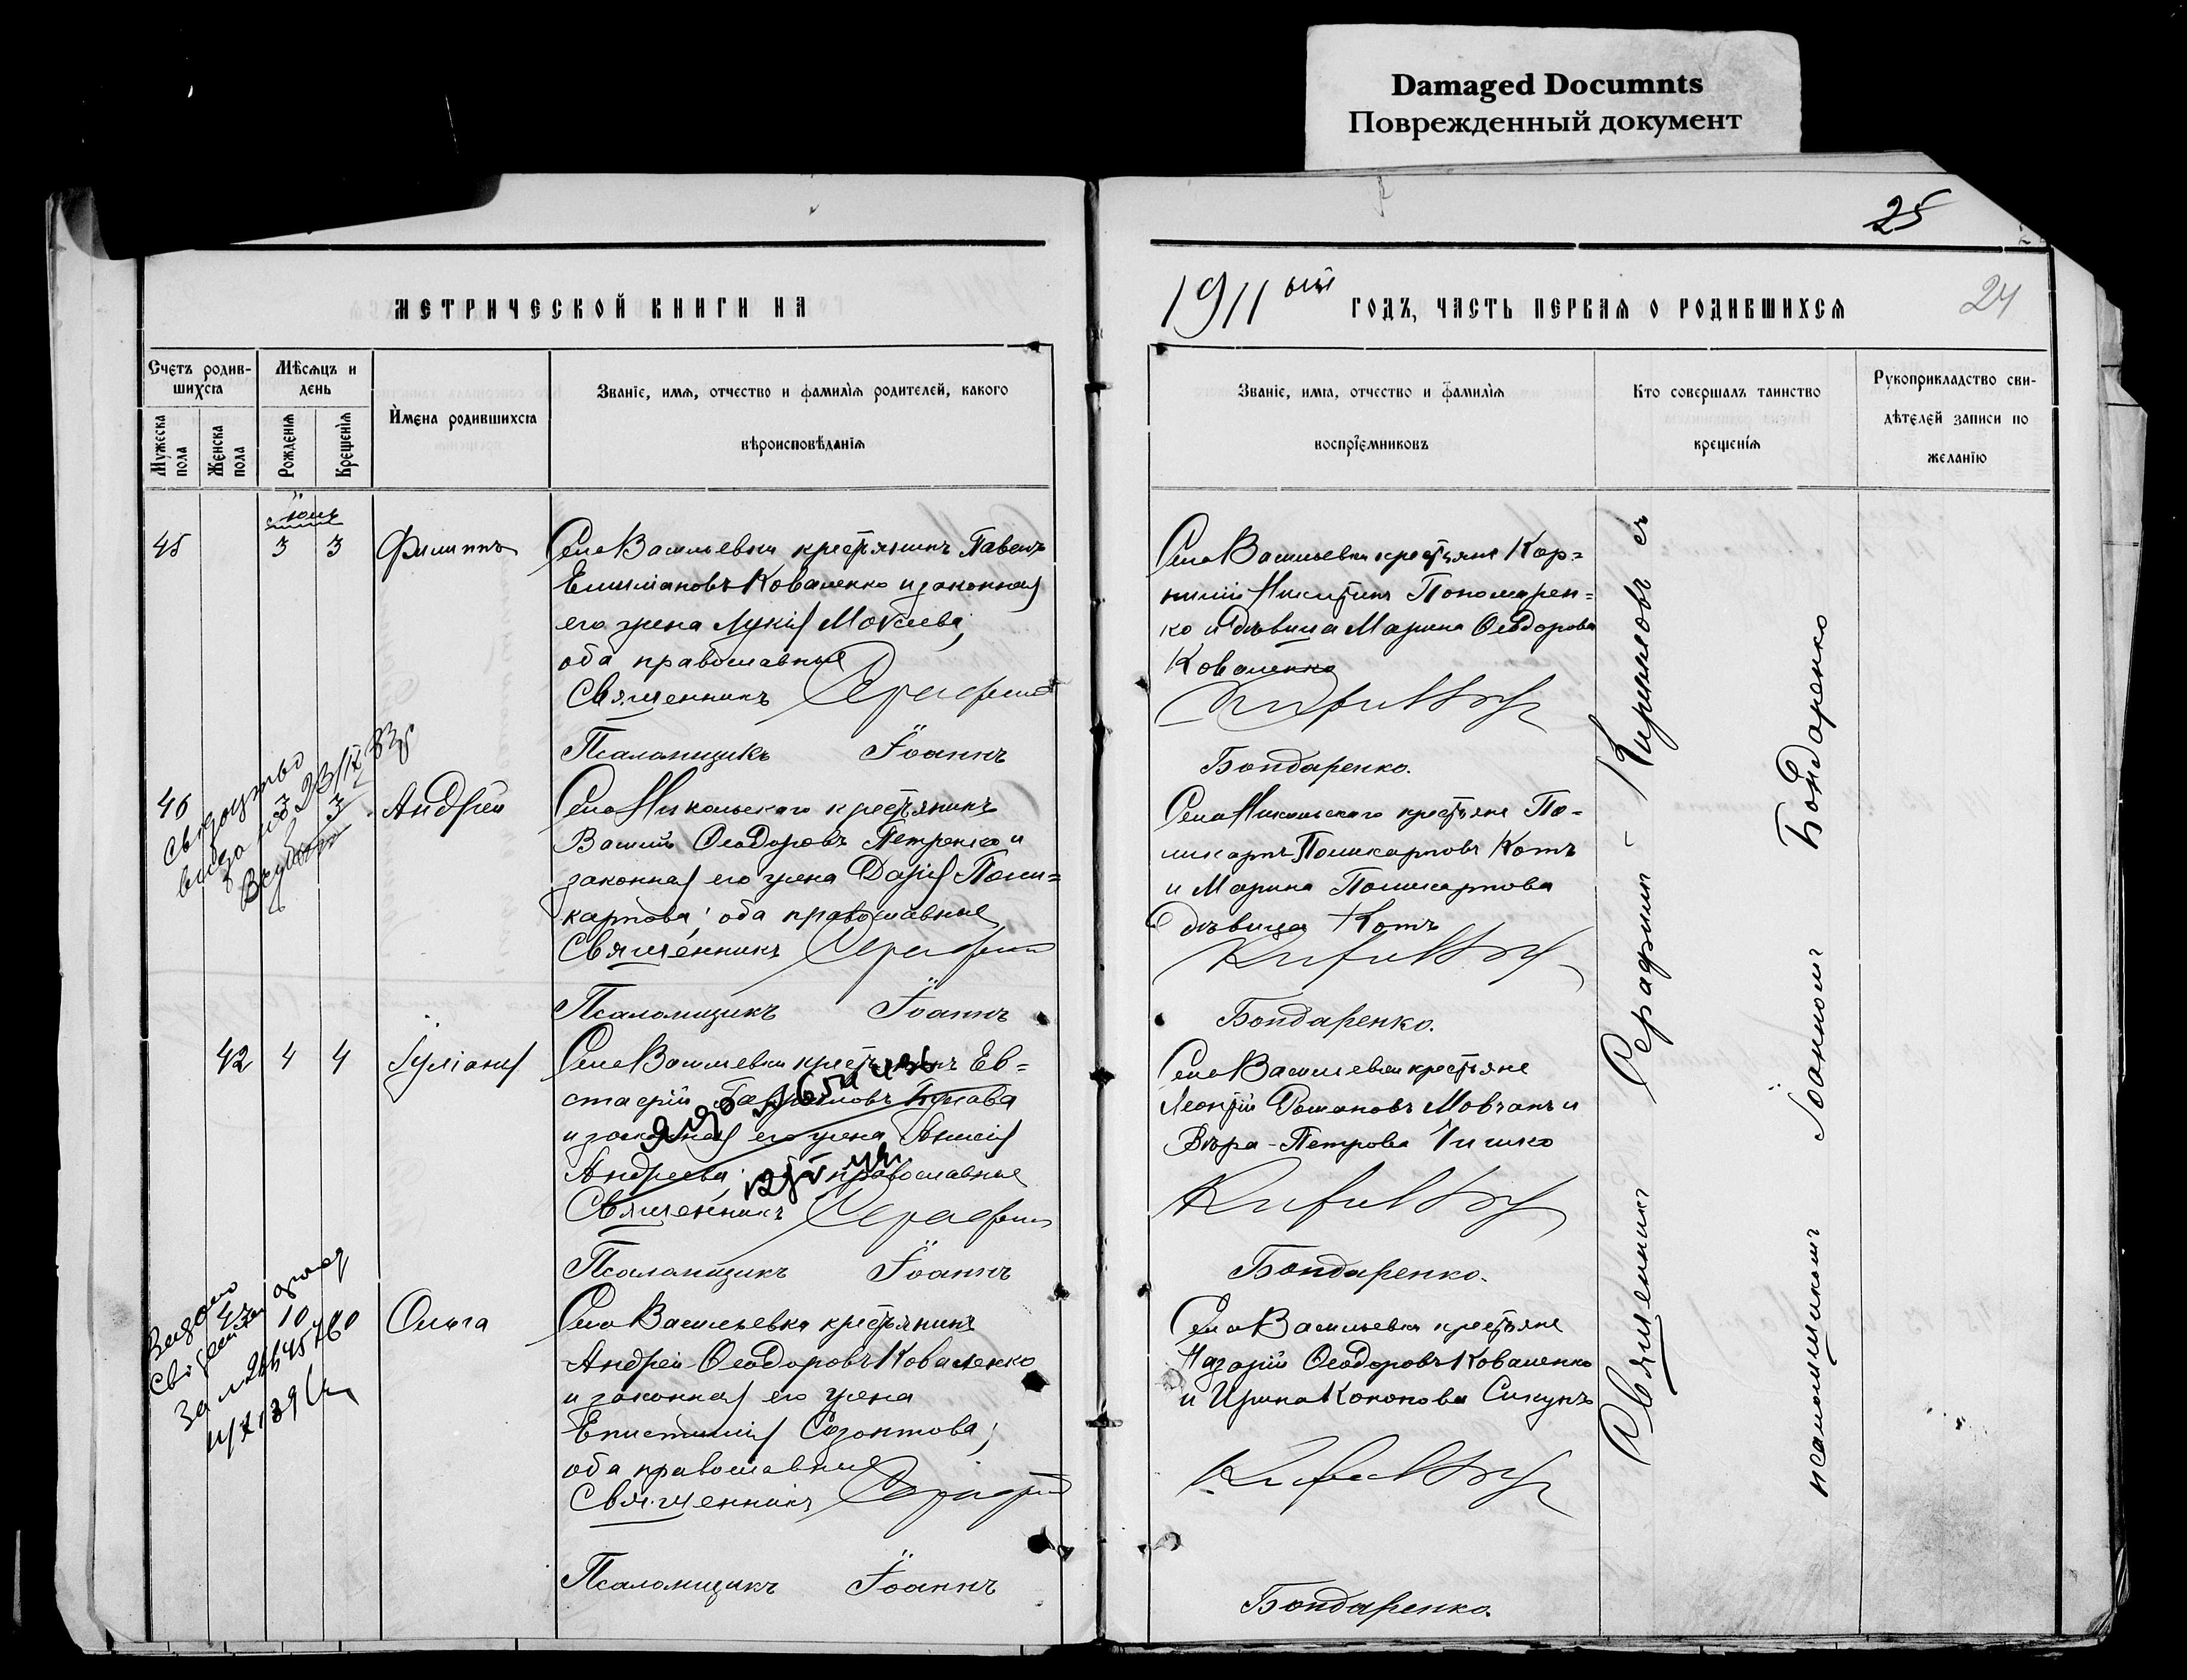 Damaged Documnts
Поврежденный документ
25
24
МЕТРИЧЕСКОЙ КНИГИ НА
1911ый ГОДЪ, ЧАСТЬ ПЕРВАЯ О РОДИВШИХСЯ
Счетъ родившихся
Мужеска пола
Женска пола
Мѣсяцъ и день
Рожденія
Крещенія
Имена родившихся
Званіе, имя, отчество и фамилія родителей, какого
вѣроисповѣданія
Званіе, имя, отчество и фамилія
воспріемниковъ
Кто совершалъ таинство
крещенія
Рукоприкладство сви-
дѣтелей записи по
желанію
45
3 3
Филиппъ
Села Васильевки крестьянинъ Павелъ
Коваленко и законная
его жена Лукія
оба православные
Священникъ Серафимъ
Псаломщикъ Іоаннъ
Села Васильевки крестьяне Кор-
нилій Никитинъ Пономарен-
ко и дѣвица Марина Ѳеодорова
Коваленко
Бондаренко.
46
3 3
Андрей
Села Никольскаго крестьянинъ
Василій Ѳеодоровъ Петренко и
законная его жена Дарія Поли-
карпова; оба православные
Священникъ Серафимъ
Псаломщикъ Іоаннъ
Села Никольскаго крестьяне По-
ликарпъ Поликарповъ Котъ
и Марина Поликарпова
дѣвица Котъ
Бондаренко.
42
4 4
Іуліанія
Села Васильевки крестьянинъ Ев-
стафій
и законная его жена
Андреева; православные
Священникъ Серафимъ
Псаломщикъ Іоаннъ
Села Васильевки крестьяне
Леонтій Романовъ Мовчанъ и
Вѣра Петрова
Бондаренко.
10
Ольга
Села Васильевки крестьянинъ
Андрей Ѳеодоровъ Коваленко
и законная его жена
Епистимія Созонтова;
оба православные
Священникъ Серафимъ
Псаломщикъ Іоаннъ
Села Васильевки крестьяне
Назарій Ѳеодоровъ Коваленко
и Ирина Кононова
Бондаренко.
Священникъ Серафимъ Кирилловъ съ
псаломщикомъ Іоанномъ Бондаренко